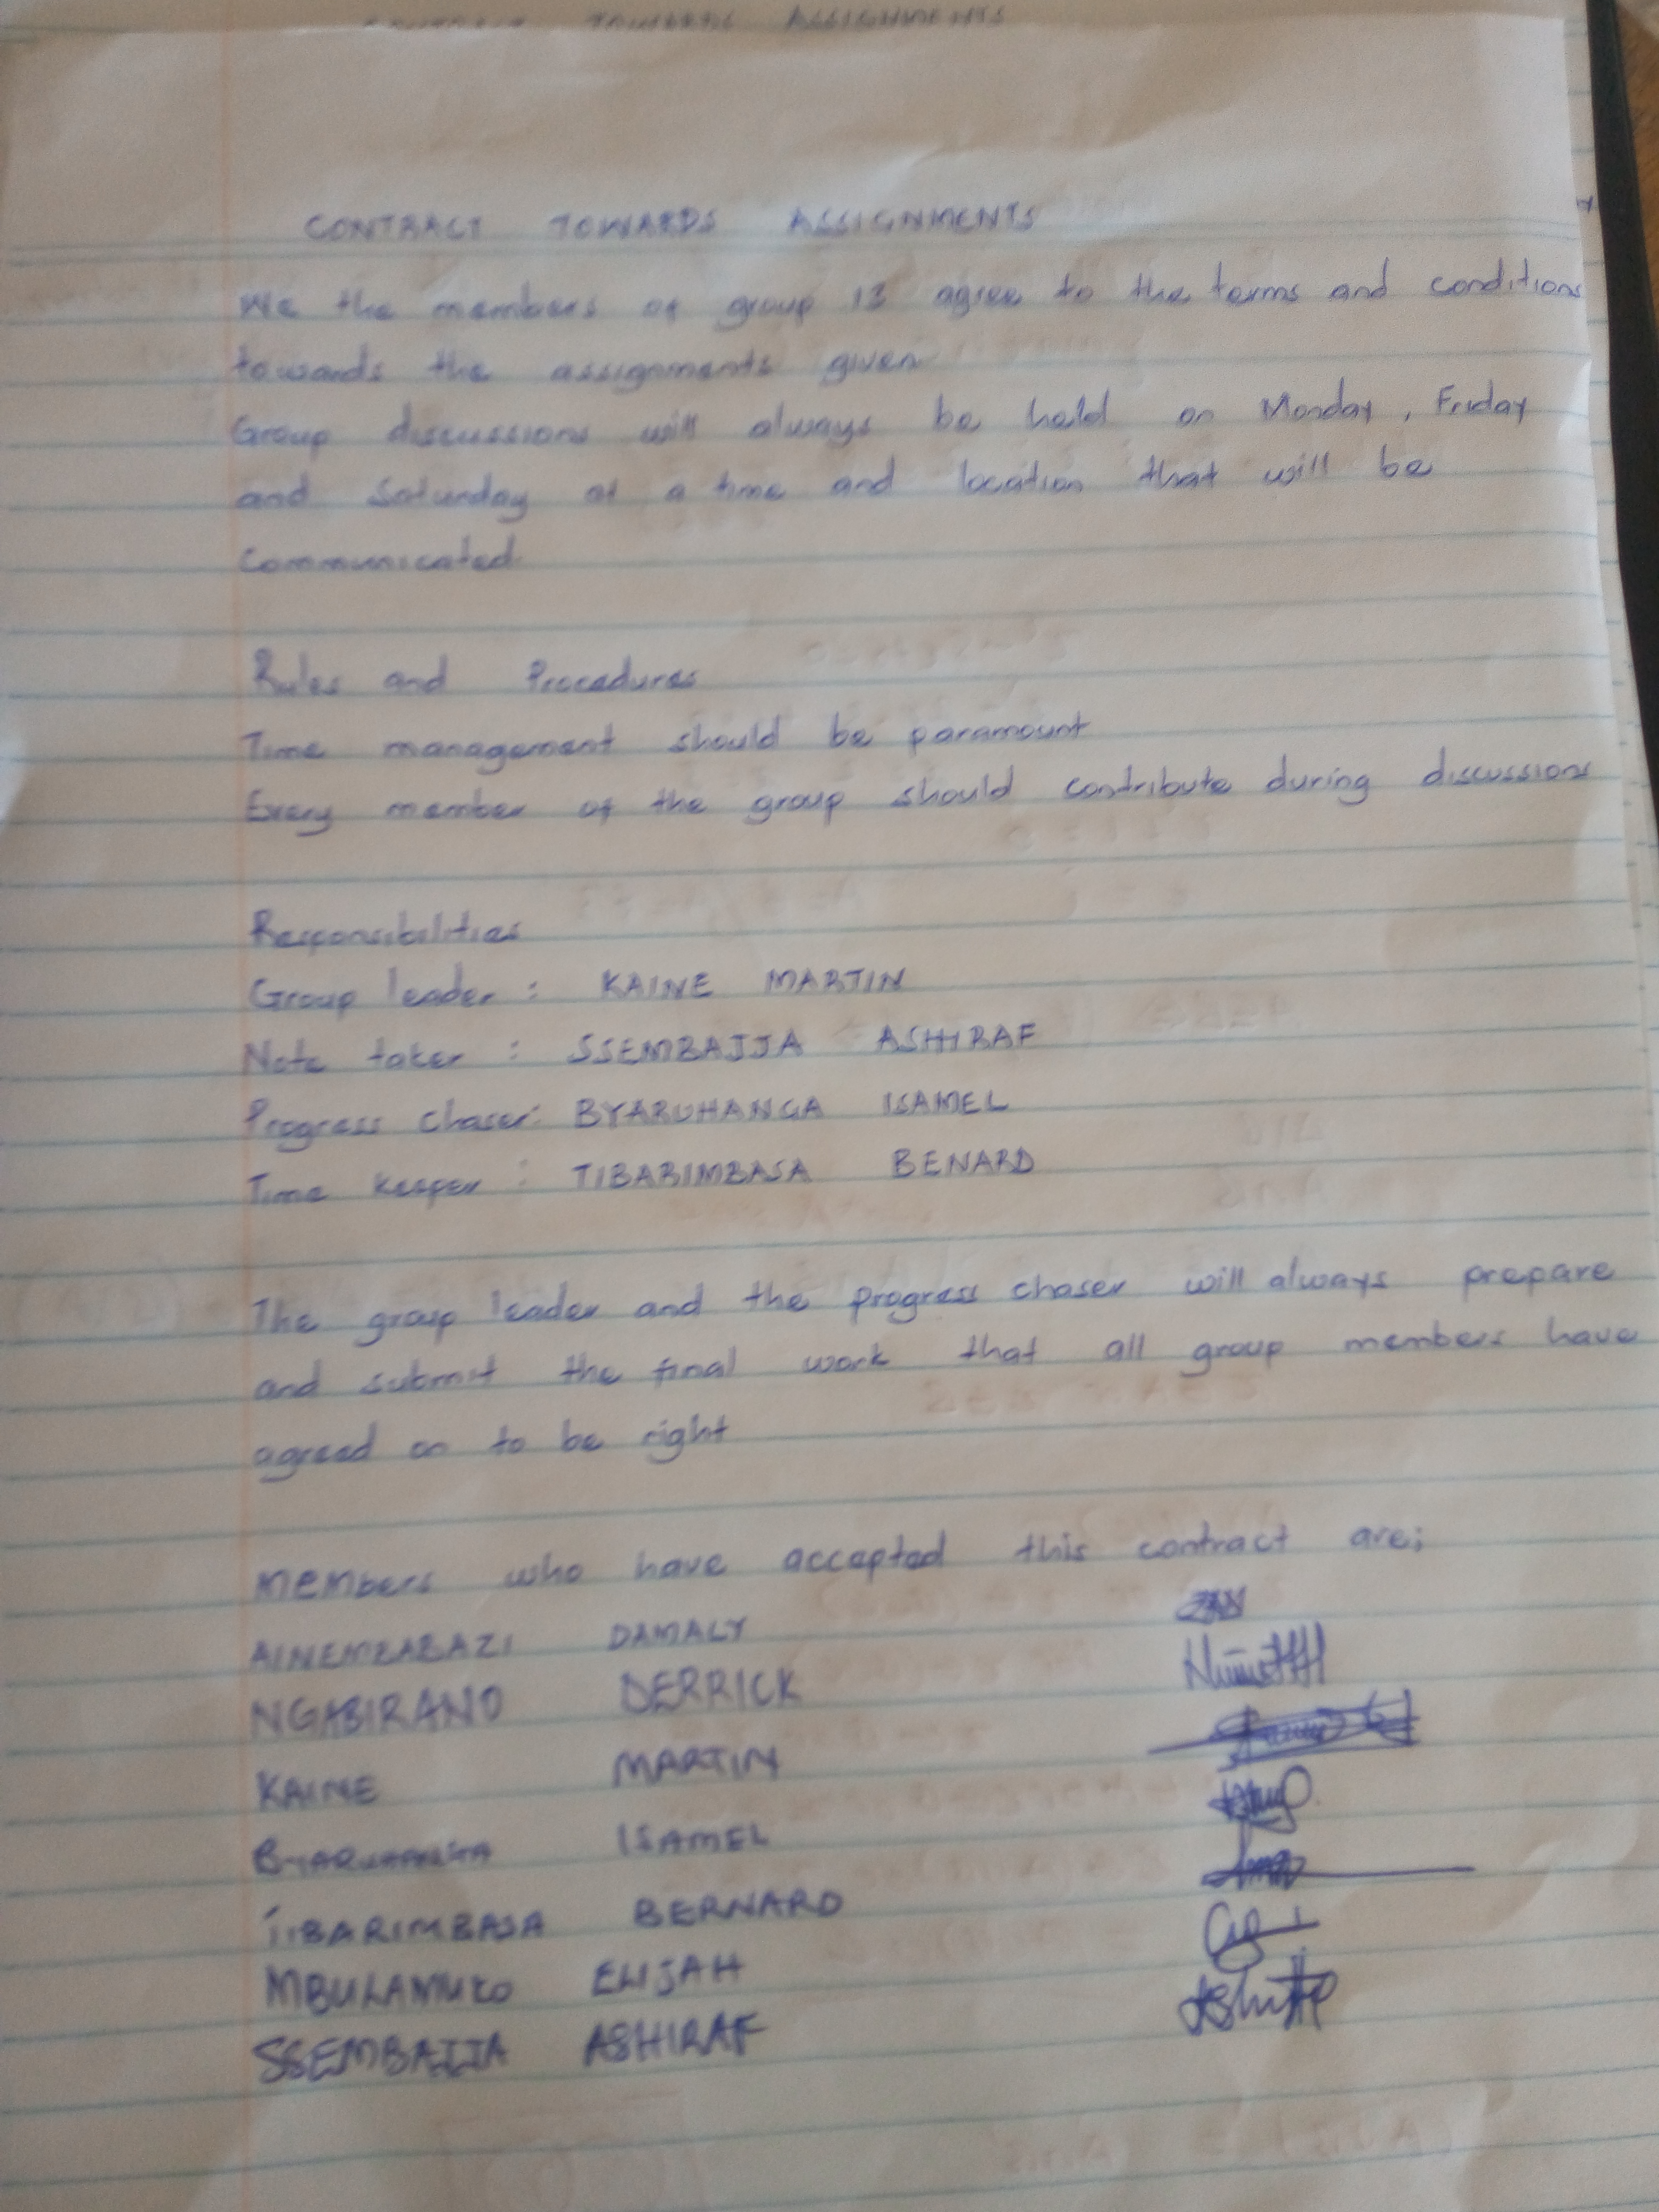 CONTRACT TOWARDS ASSIGNMENTS
CONTRACT TOWARDS ASSIGNMENTS
We the members of group 13 agree to the terms and conditions
towards the assignments given
Group discussions will always be held on Monday, Friday
and Saturday at a time and location that will be
Communicated.
Rules and Procedures
Time management should be paramount
Every member of the group should contribute during discussions
Responsibilities
Group leader : KAINE MARTIN
Note taker : SSEMBAJJA ASHIRAF
Progress chaser: BYARUHANGA ISAMEL
Time keeper : TIBARIMBASA BENARD
The group leader and the progress chaser will always prepare
and submit the final work that all group members have
agreed on to be right
Members who have accepted this contract are;
AINEMBABAZI DAMALY
NGABIRANO DERRICK
KAINE MARTIN
BYARUHANGA ISAMEL
TIBARIMBASA BERNARD
MBULAMUKO ELIJAH
SSEMBAJJA ASHIRAF